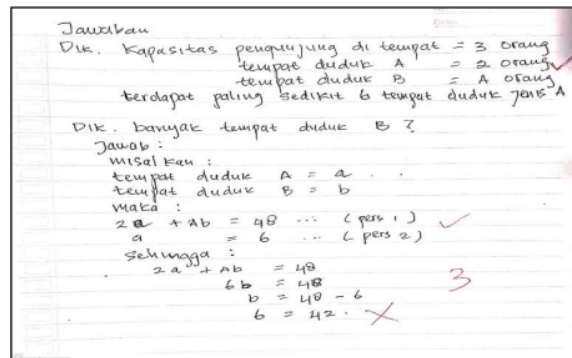 Jawaban
Dik. Kapasitas pengunjung di tempat = 3 orang
tempat duduk A = 2 orang
tempat duduk B = A orang
terdapat paling sedikit 6 tempat duduk jenis A
Dik. banyak tempat duduk B ?
Jawab :
misalkan :
tempat duduk A = a
tempat duduk B = b
maka :
2a + Ab = 48 ... (pers 1)
a = 6 ... (pers 2)
sehingga :
2a + Ab = 48
6b = 48
b = 48 - 6
b = 42.
3